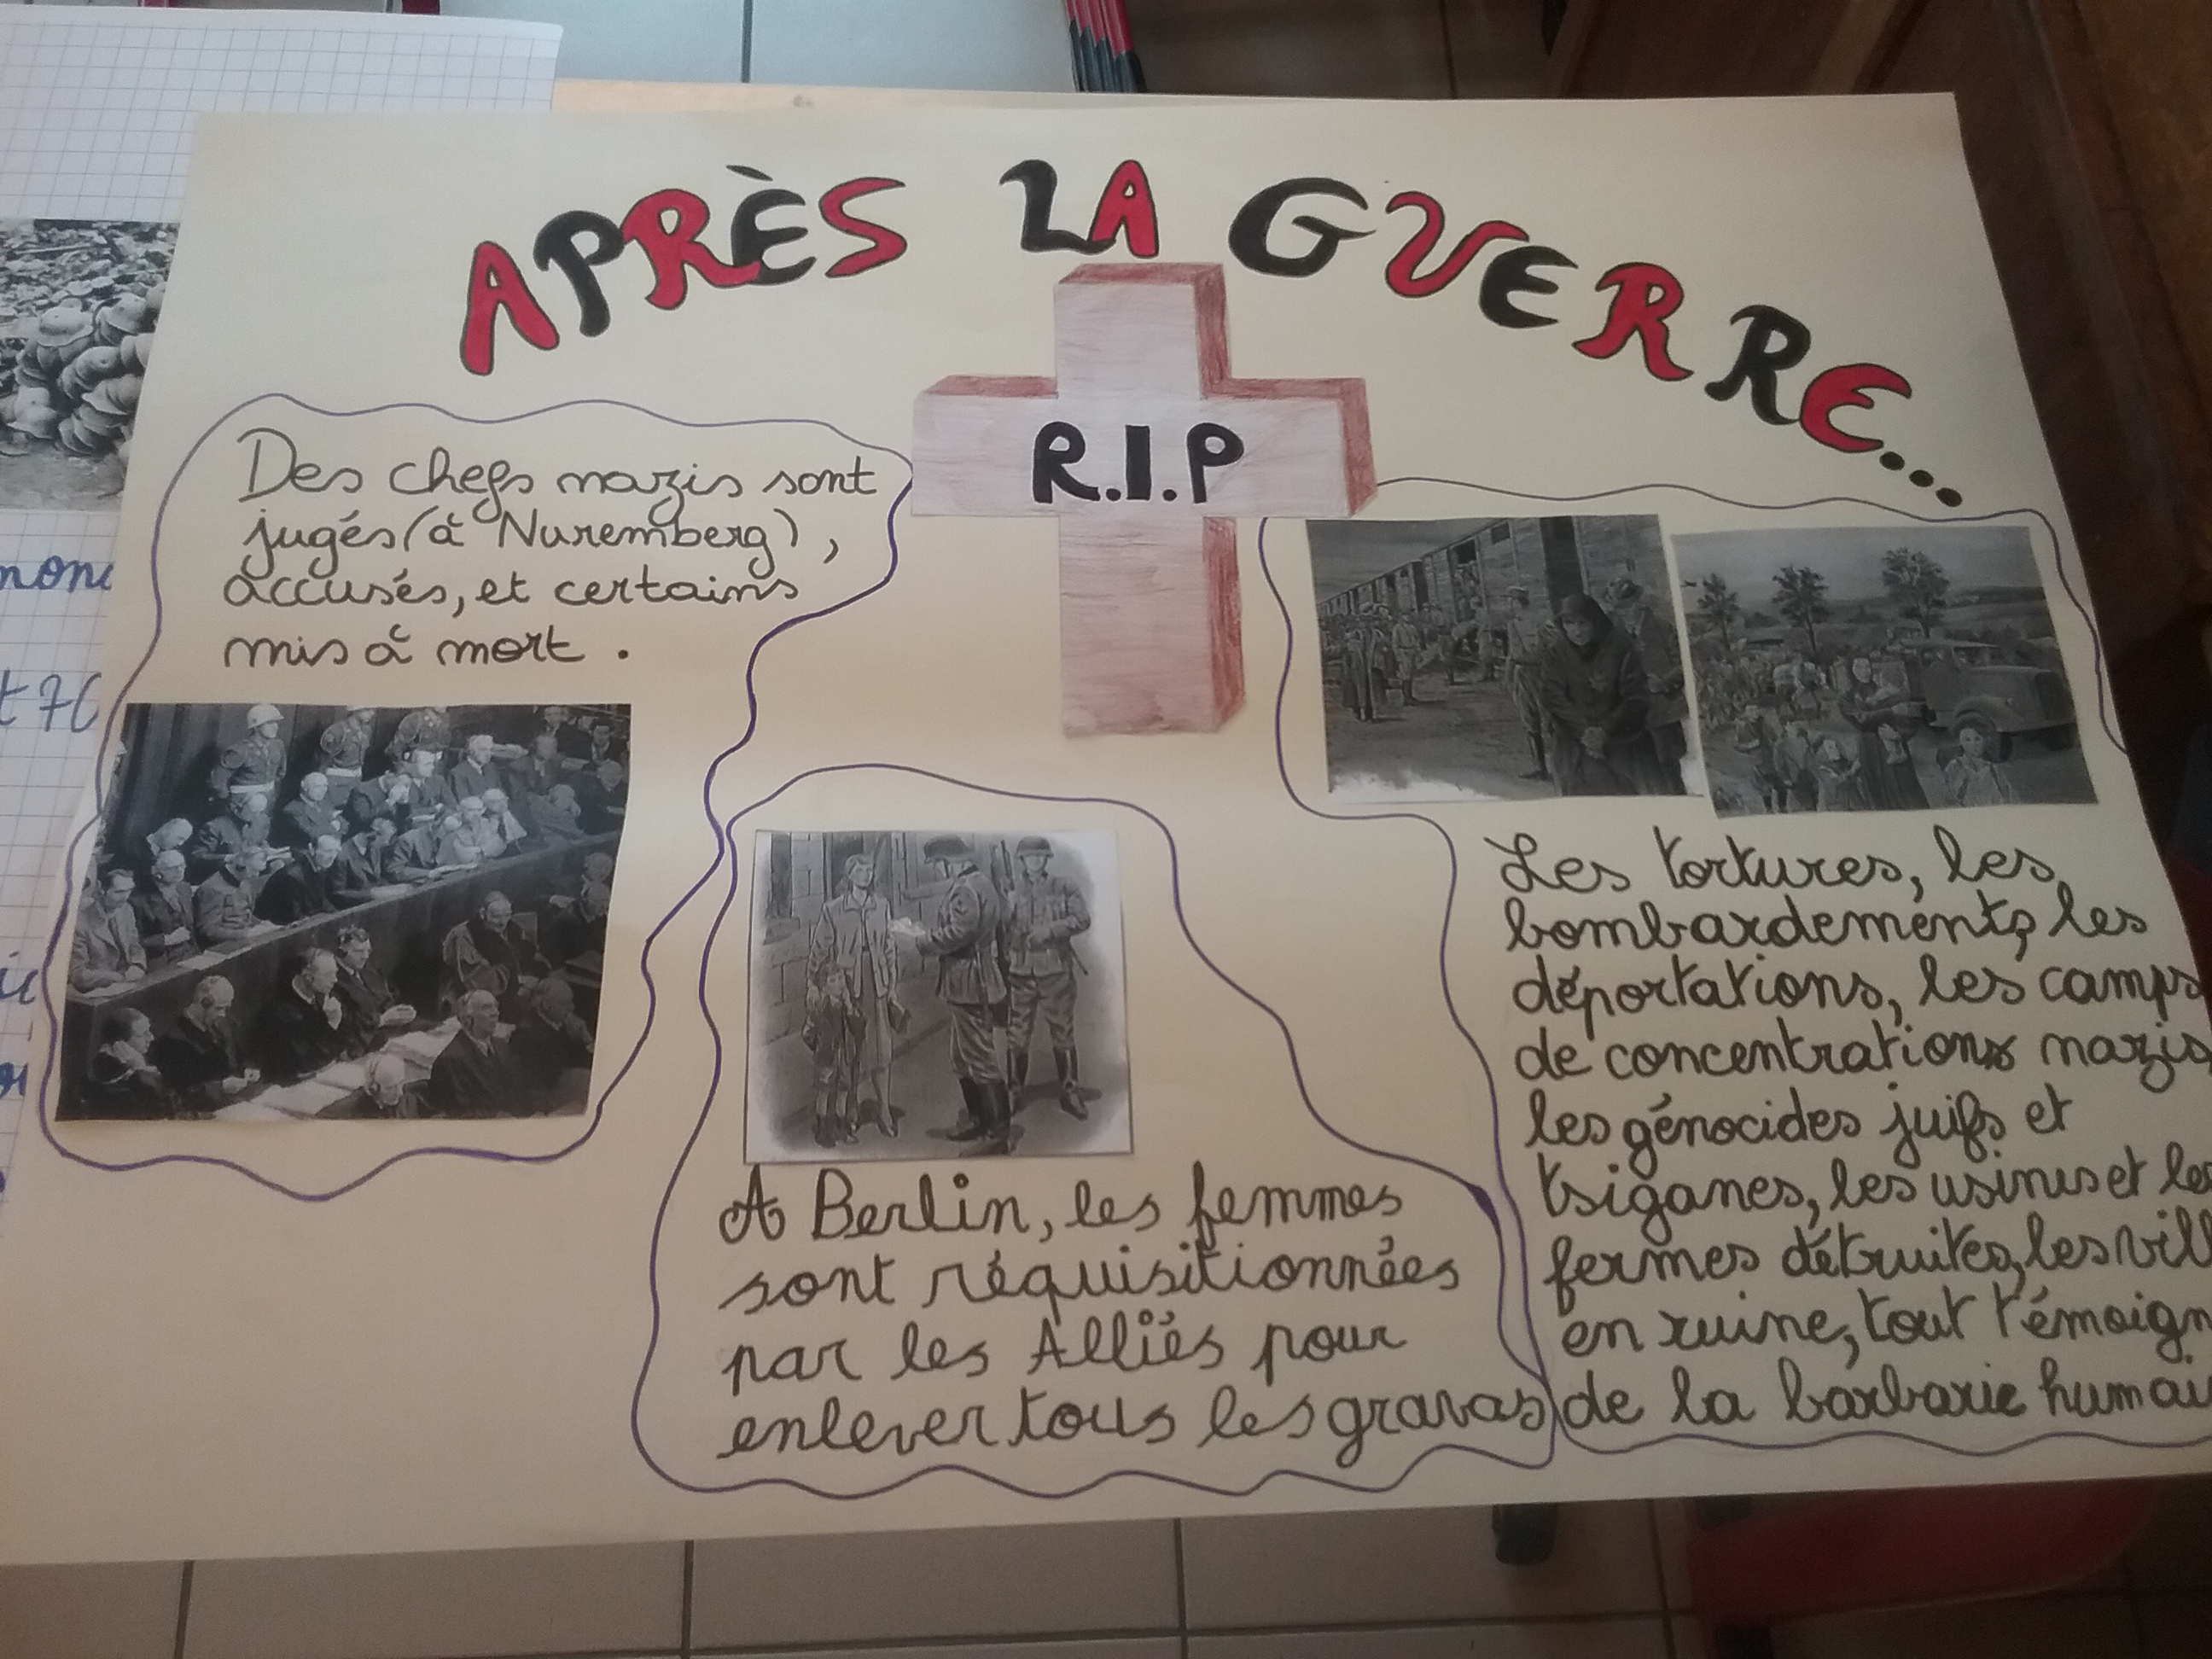 APRÈS LA GUERRE...
R.I.P
Des chefs nazis sont
jugés (à Nuremberg),
accusés, et certains
mis à mort.
A Berlin, les femmes
sont réquisitionnées
par les Alliés pour
enlever tous les gravas
Les tortures, les
bombardements, les
déportations, les camps
de concentrations nazis
les génocides juifs et
tsiganes, les usines et les
fermes détruites, les vill
en ruine, tout témoign
de la barbarie humai